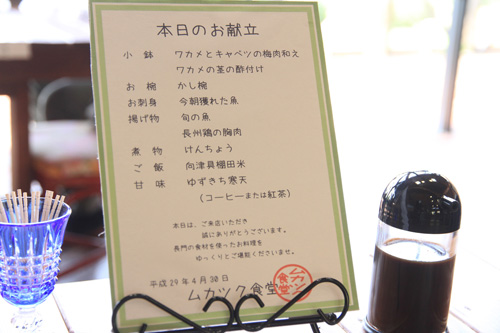 本日のお献立
小　鉢　ワカメとキャベツの梅肉和え
ワカメの茎の酢付け
お　椀　かし椀
お刺身　今朝獲れた魚
揚げ物　旬の魚
長州鶏の胸肉
煮　物　けんちょう
ご　飯　向津具棚田米
甘　味　ゆずきち寒天
（コーヒーまたは紅茶）
本日は、ご来店いただき
誠にありがとうございます。
長門の食材を使ったお料理を
ゆっくりとご堪能くださいませ。
平成29年4月30日
ムカツク食堂
ムカツク食堂